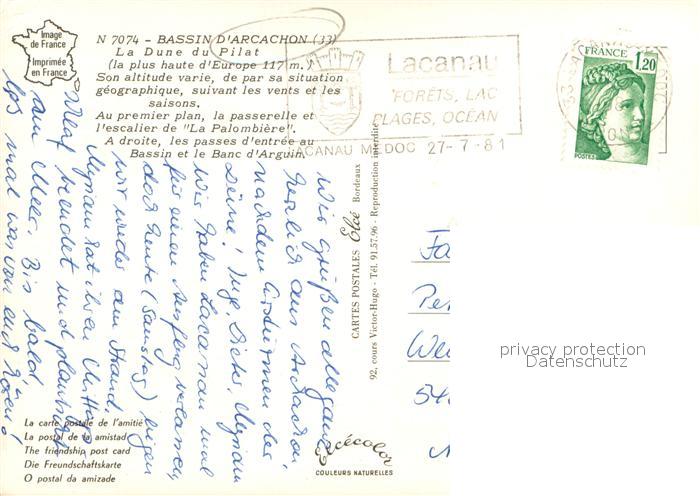 Image
de France
Imprimée
en France
N 7074 - BASSIN D'ARCACHON (33)
La Dune du Pilat
(la plus haute d'Europe 117 m.)
Son altitude varie, de par sa situation
géographique, suivant les vents et les
saisons.
Au premier plan, la passerelle et
l'escalier de "La Palombière".
A droite, les passes d'entrée au
Bassin et le Banc d'Arguin.
Lacanau
FORÊTS, LAC
PLAGES, OCÉAN
LACANAU MEDOC 27-7-81
FRANCE
1,20
POSTES
Wir grüßen alle ganz
herzlich aus Arcachon,
nachdem Erstürmen der
Düne! Inge, Dieter, Myriam
Wir haben Lacanau mal
für einen Ausflug verlassen,
doch heute (Samstag) liegen
wir wieder am Strand.
Myriam hat ihren Mittags
schlaf beendet und plantscht
am Meer. Bis bald,
laßt mal was von euch hören!
CARTES POSTALES Elcé Bordeaux
92, cours Victor-Hugo - Tél. 91.57.96 - Reproduction interdite
Fa
Pe
We
54
privacy protection
Datenschutz
La carte postale de l'amitié
La postal de la amistad
The friendship post card
Die Freundschaftskarte
O postal da amizade
COULEURS NATURELLES